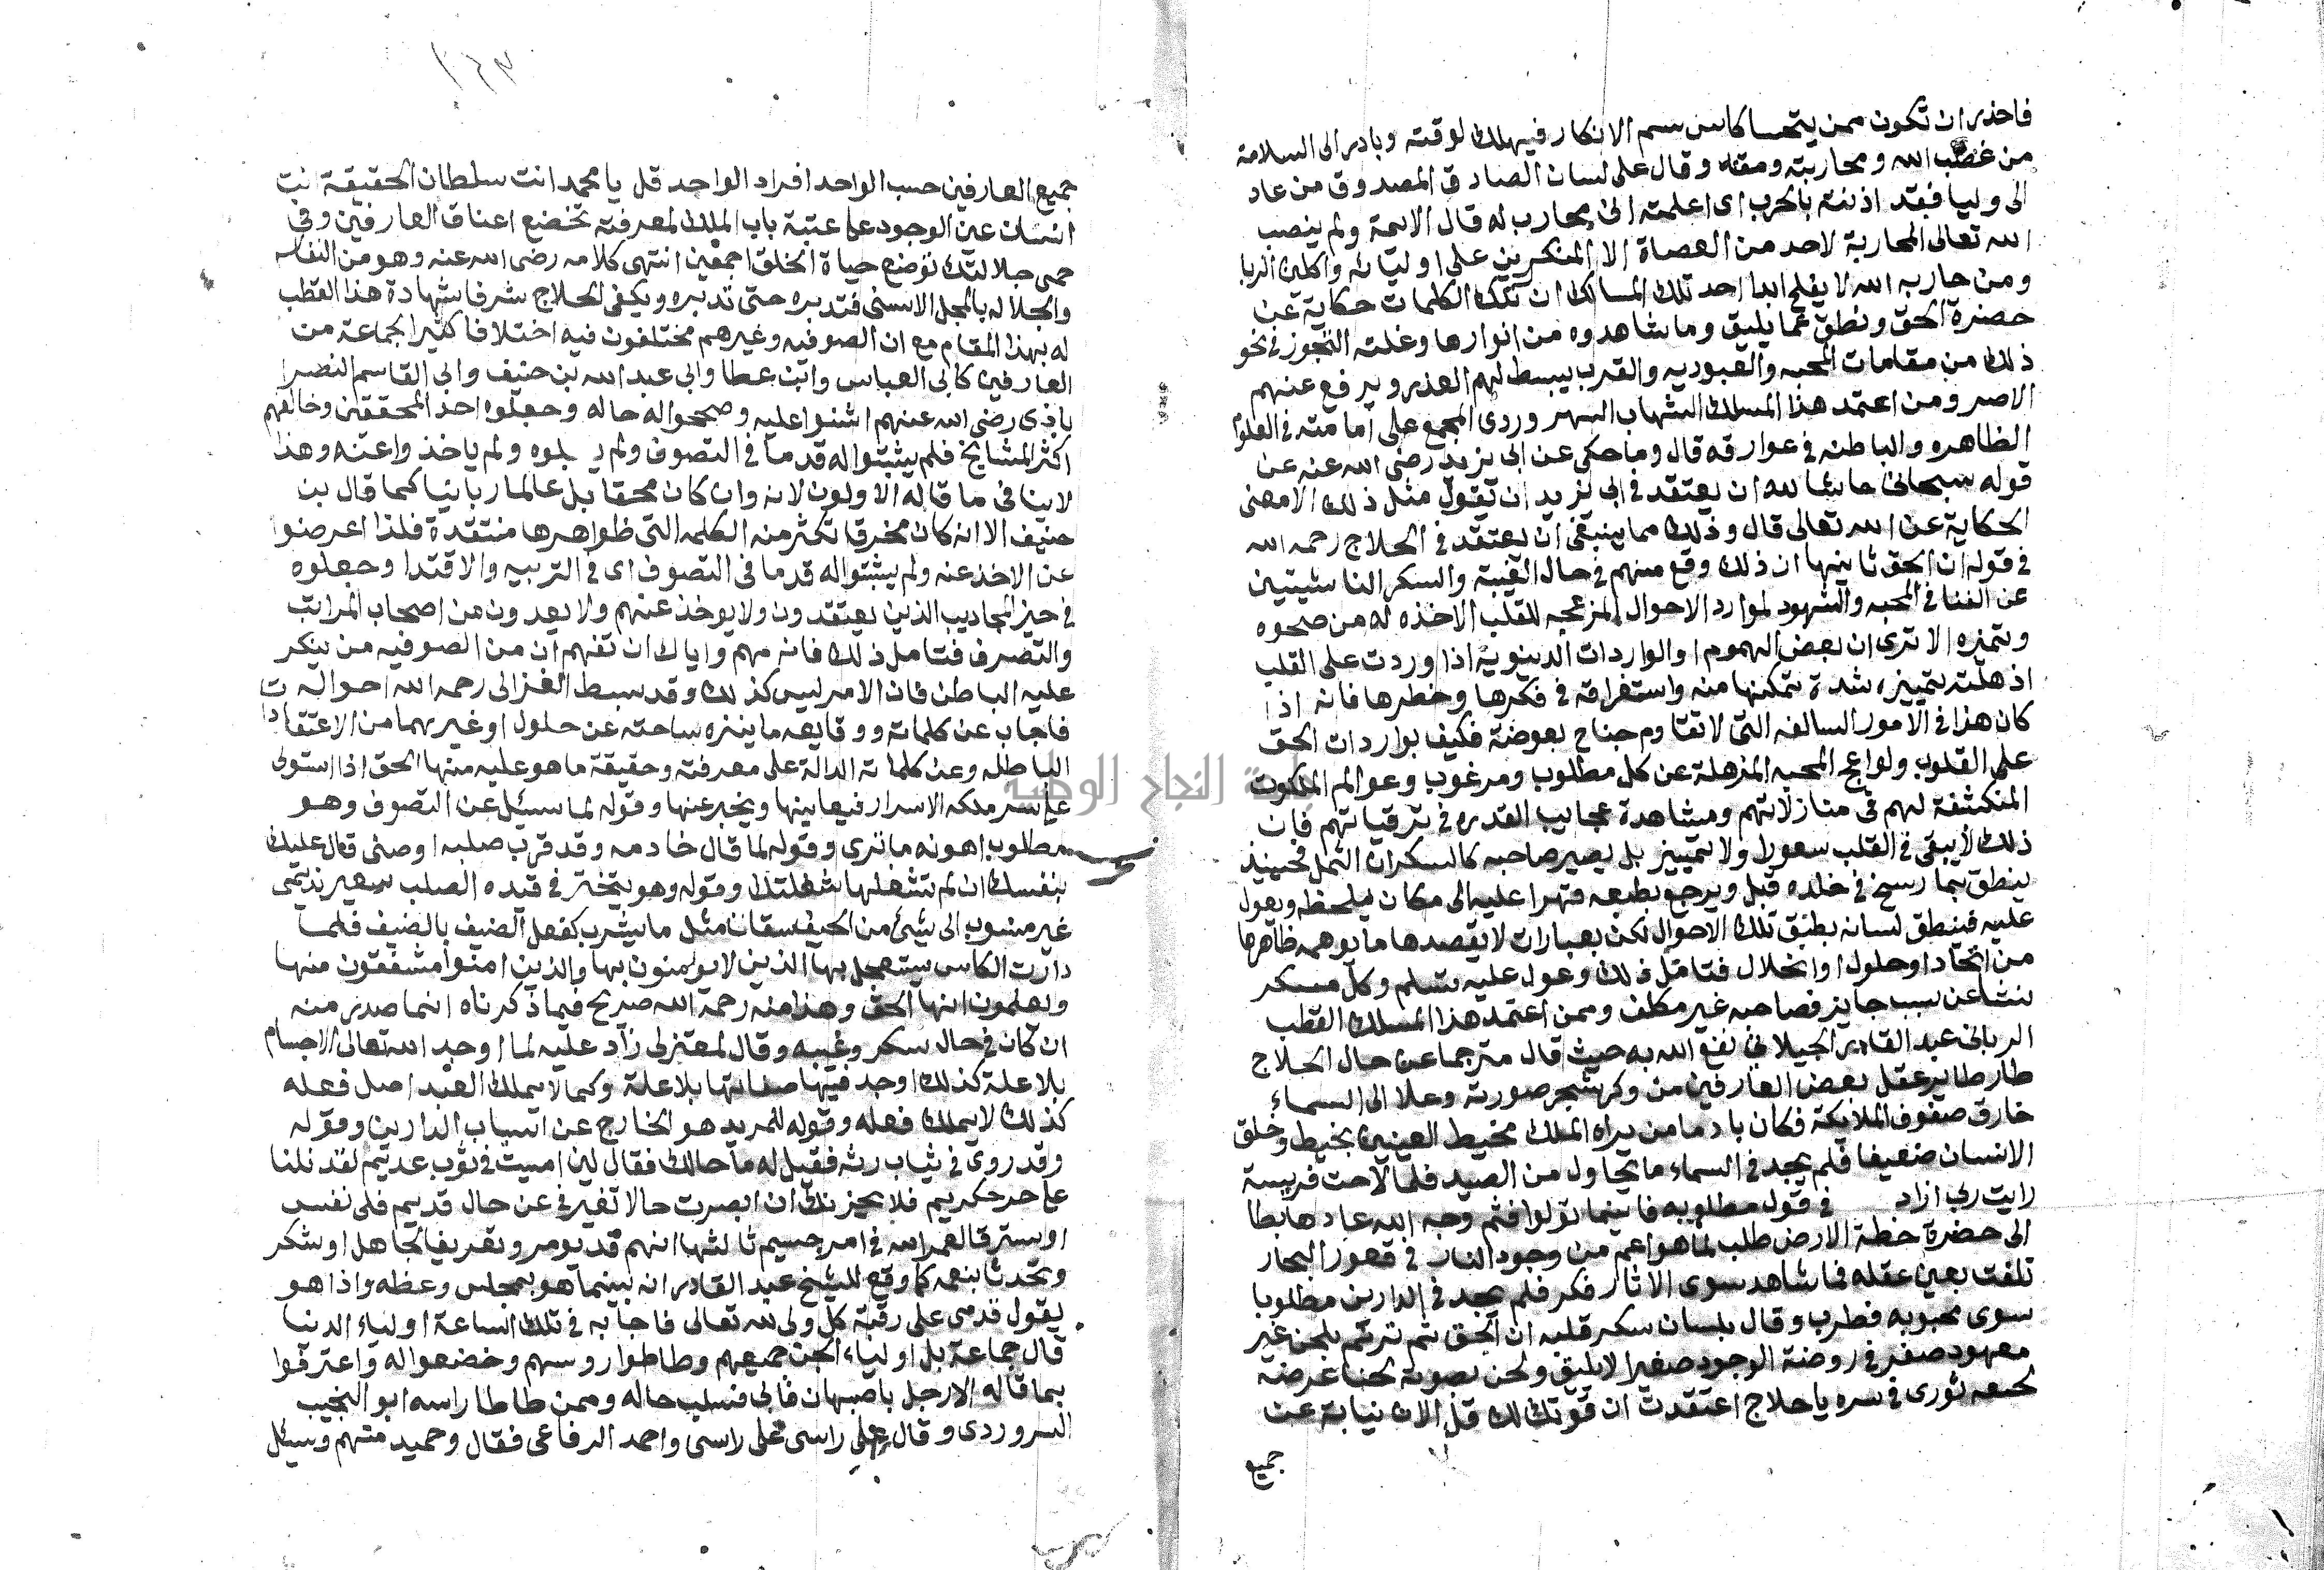 فاحذر ان تكون ممن يتحسا كاس سم الانكار فيهلك لوقته وبادر الى السلامة
من غضب الله ومحاربته ومقته وقال على لسان الصادق المصدوق من عاد
الى وليا فقد اذنته بالحرب اى اعلمته انى محارب له قال الائمة ولم ينصب
الله تعالى المحاربة لاحد من العصاة الا المنكرين على اوليائه واكلين الربا
ومن حاربه الله لا يفلح ابدا احد تلك المسالك ان تلك الكلمات حكاية عن
حضرة الحق ونطق عما يليق وما شاهدوه من انوارها وغلبة التجوز فى نحو
ذلك من مقامات المحبه والعبوديه والقرب يبسط لهم العذر ويرفع عنهم
الاصر ومن اعتمد هذا المسلك الشهاب السهروردى المجمع على امامته فى العلوم
الظاهره والباطنه فى عوارفه قال وما حكى عن ابى يزيد رضى الله عنه عن
قوله سبحانى حاشا لله ان يعتقد فى ابى يزيد ان تقول مثل ذلك الا معنى
الحكاية عن الله تعالى قال وذلك مما ينبغى ان يعتقد فى الحلاج رحمه الله
فى قوله ان الحق ثانيها ان ذلك وقع منهم فى حال الغيبة والسكر الناشيتين
عن الفنا فى المحبه والشهود لموارد الاحوال المزعجه للقلب الاخذه له من صحوه
وتميزه الا ترى ان بعض الهموم او الواردات الدينوية اذا وردت على القلب
اذهلت بتمييزه شدة تمكنها منه واستغراقه فى فكرها وخطرها فانه اذا
كان هذا فى الامور السالفه التى لا تقاوم جناح بعوضة فكيف بواردات الحق
على القلوب ولواعج المحبه المذهلة عن كل مطلوب ومرغوب وعوالم الملكوت
المنكشفة لهم فى منازلاتهم ومشاهدة عجايب القدره فى ترقياتهم فان
ذلك لا يبقى فى القلب سعورا ولا تمييز بل يصير صاحبه كالسكران الثمل فحينيذ
ينطق بما رسخ فى خلده قبل ويرجع بطبعه قهرا عليه الى مكان يلحظه ويعول
عليه فينطق لسانه بطبق تلك الاحوال لكن بعبارات لا يقصدها ما يوهمه ظاهرها
من اتحاد او حلول او انحلال فتامل ذلك وعول عليه تسلم وكل مسكر
ينشا عن سبب جايز فصاحبه غير مكلف وممن اعتمد هذا المسلك القطب
الربانى عبد القادر الجيلانى نفع الله به حيث قال مترجما عن حال الحلاج
طار طاير عقل بعض العارفين من وكر شجر صورته وعلا الى السماء
خارق صفوف الملائكة فكان بازيا من بزاه الملك مخيط العينين بخيط وخلق
الانسان ضعيفا فلم يجد فى السماء ما يحاول من الصيد فلما لاحت فريسة
رايت ربى ازاد فى قول مطلوبه فاينما تولوا فثم وجه الله عاد هابطا
الى حضرة خطة الارض طلب لما هو اعم من وجود النار فى قعور البحار
تلفت بعين عقله فما شاهد سوى الاثار فكر فلم يجد فى الدارين مطلوبا
سوى محبوبه فطرب وقال بلسان سكر قلبه ان الحق ثم ترنم بلحن غير
معهود صفر فى روضة الوجود صفيرا لا يليق ولحن بصوته لحنا عرضه
لحتفه نورى فى سره يا حلاج اعتقدت ان قوتك لك قل الان نيابة عن
جميع
جميع العارفين حسب الواحد افراد الواحد قل يا محمد انت سلطان الحقيقة انت
انسان عين الوجود على عتبة باب الملك لمعرفته تخضع اعناق العارفين وفى
حمى جلالتك توضع حياة الخلق اجمعين انتهى كلامه رضى الله عنه وهو من النفاسه
والجلاله بالمحل الاسنى فتدبره حتى تدبره ويكفى الحلاج شرفا شهادة هذا القطب
له بهذا المقام مع ان الصوفيه وغيرهم مختلفون فيه اختلافا كثيرا لجماعة من
العارفين كابى العباس وابن عطا وابى عبد الله بن حنيف وابى القاسم النصرا
باذى رضى الله عنهم اثنوا عليه وصححوا له حاله وجعلوه احد المحققين وخالفهم
اكثر المشايخ فلم يثبتوا له قدما فى التصوف ولم يـ بلوه ولم ياخذوا عنه وهذا
لا ينافى ما قاله الاولون لانه وان كان محقا بل عالما ربانيا كما قال بن
حنيف الا انه كان مخرقا تكثر منه الكلمه التى ظواهرها منتقدة فلذا اعرضوا
عن الاخذ عنه ولم يثبتوا له قدما فى التصوف اى فى التربيه والاقتدا وجعلوه
فى حيز المجاذيب الذين يعتقدون ولا يوخذ عنهم ولا يعدون من اصحاب المراتب
والتصرف فتامل ذلك فانه مهم واياك ان تفهم ان من الصوفيه من ينكر
عليه الباطن فان الامر ليس كذلك وقد سبط الغزالى رحمه الله احواله
فاجاب عن كلماته ووقايعه ما ينزه ساحته عن حلول او غيرهما من الاعتقادا
الباطله وعن كلماته الدالة على معرفته وحقيقة ما هو عليه منها الحق اذا استولى
على سر ملكه الاسرار فيعاينها ويخبر عنها وقوله لما سيل عن التصوف وهو
مطلوب اهونه ما ترى وقوله لما قال خادمه وقد قرب صلبه اوصنى قال عليك
بنفسك ان لم تشغلها شغلتك وقوله وهو يتخثر فى قيده الصلب شعر نديمى
غير منسوب الى شىء من الحيف سقانى مثل ما يشرب كفعل الضيف بالضيف فلما
دارت الكاس يستعجل بها الذين لا يومنون بها والذين امنوا مشفقون منها
ويعلمون انها الحق وهذا منه رحمة الله صريح فيما ذكرناه انما صدر منه
ان كان فى حال سكر وغيبه وقال لمعتزلى زاد عليه لما اوجد الله تعالى الاجسام
بلا علة كذلك اوجد فيها صفاتها بلا علة وكما لا يملك العبد اصل فعله
كذلك لا يملك فعله وقوله للمريد هو الخارج عن اسباب الدارين وقوله
وقد روى فى ثياب رثه فقيل له ما حالك فقال لين امسيت فى ثوب عديم لقد نلنا
على حر كريم فلا يحزنك ان ابصرت حالا تغيرنى عن حال قديم فلى نفس
او سترقا لعمر الله فى امر جسيم ثالثها انهم قد يومروا تعريفا لجاهل او شكر
وتحدثا بنعمه كما وقع للشيخ عبد القادر انه بينما هو بمجلس وعظه واذا هو
يقول قدمى على رقبة كل ولى لله تعالى فاجابه فى تلك الساعة اولياء الدنيا
قال جماعة بل اولياء الجن جميعهم وطاطوا روسهم وخضعوا له واعترفوا
بما قاله الا رجل باصبهان فابى فسلب حاله وممن طاطا راسه ابو النجيب
السروردى وقال على راسى على راسى واحمد الرفاعى فقال وحميد منهم وسيل